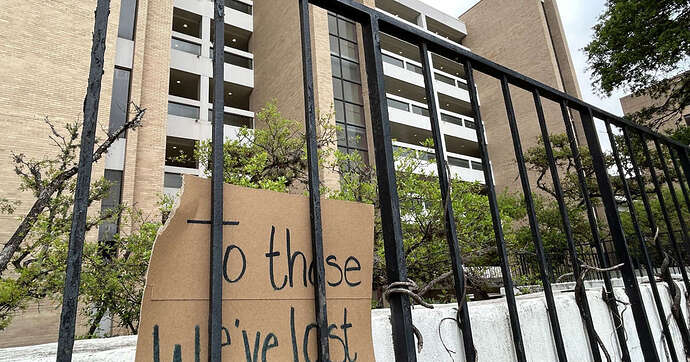 To those
We've lost